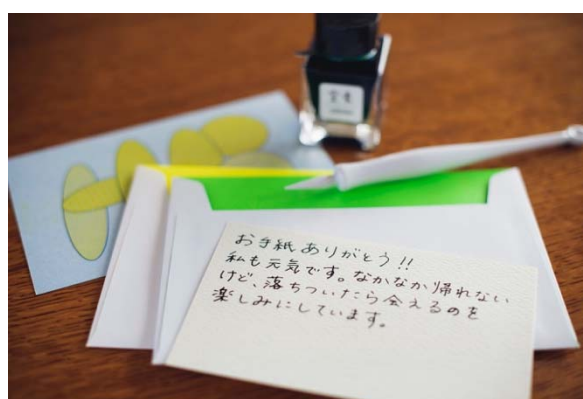 お手紙ありがとう!!
私も元気です。なかなか帰れない
けど、落ちついたら会えるのを
楽しみにしています。